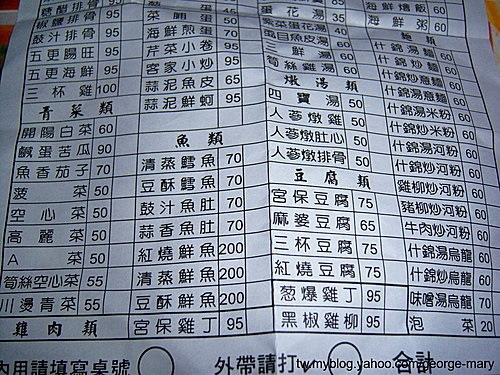 糖醋排骨 95
椒鹽排骨 95
鼓汁排骨 95
五更腸旺 95
五更海鮮 95
三杯雞 100
青菜類
開陽白菜 60
鹹蛋苦瓜 90
魚香茄子 70
菠菜 50
空心菜 50
高麗菜 50
A菜 50
筍絲空心菜 55
川燙青菜 55
雞肉類
菜脯蛋 45
海鮮煎蛋 70
芹菜小卷 95
客家小炒 95
蒜泥魚皮 65
蒜泥鮮蚵 95
魚類
清蒸鱈魚 70
豆酥鱈魚 70
鼓汁魚肚 70
蒜香魚肚 70
紅燒鮮魚 200
清蒸鮮魚 200
豆酥鮮魚 200
宮保雞丁 95
蛋花湯 35
紫菜蛋花湯 35
虱目魚皮湯 60
三鮮湯 60
筍絲雞湯 40
燉湯類
四寶湯 50
人蔘燉雞 50
人蔘燉肚心 50
人蔘燉排骨 50
豆腐類
宮保豆腐 75
麻婆豆腐 65
三杯豆腐 75
紅燒豆腐 75
葱爆雞丁 95
黑椒雞柳 95
海鮮燴飯 60
海鮮粥 60
麵類
什錦湯麵 60
什錦炒麵 60
什錦炒意麵 60
什錦湯意麵 60
什錦湯米粉 60
什錦炒米粉 60
什錦湯河粉 60
什錦炒河粉 60
雞柳炒河粉 60
豬柳炒河粉 60
牛肉炒河粉 60
什錦湯烏龍 60
什錦炒烏龍 60
味噌湯烏龍 70
泡菜 20
內用請填寫桌號
外帶請打
合計
tw.myblog.yahoo.com/george-mary